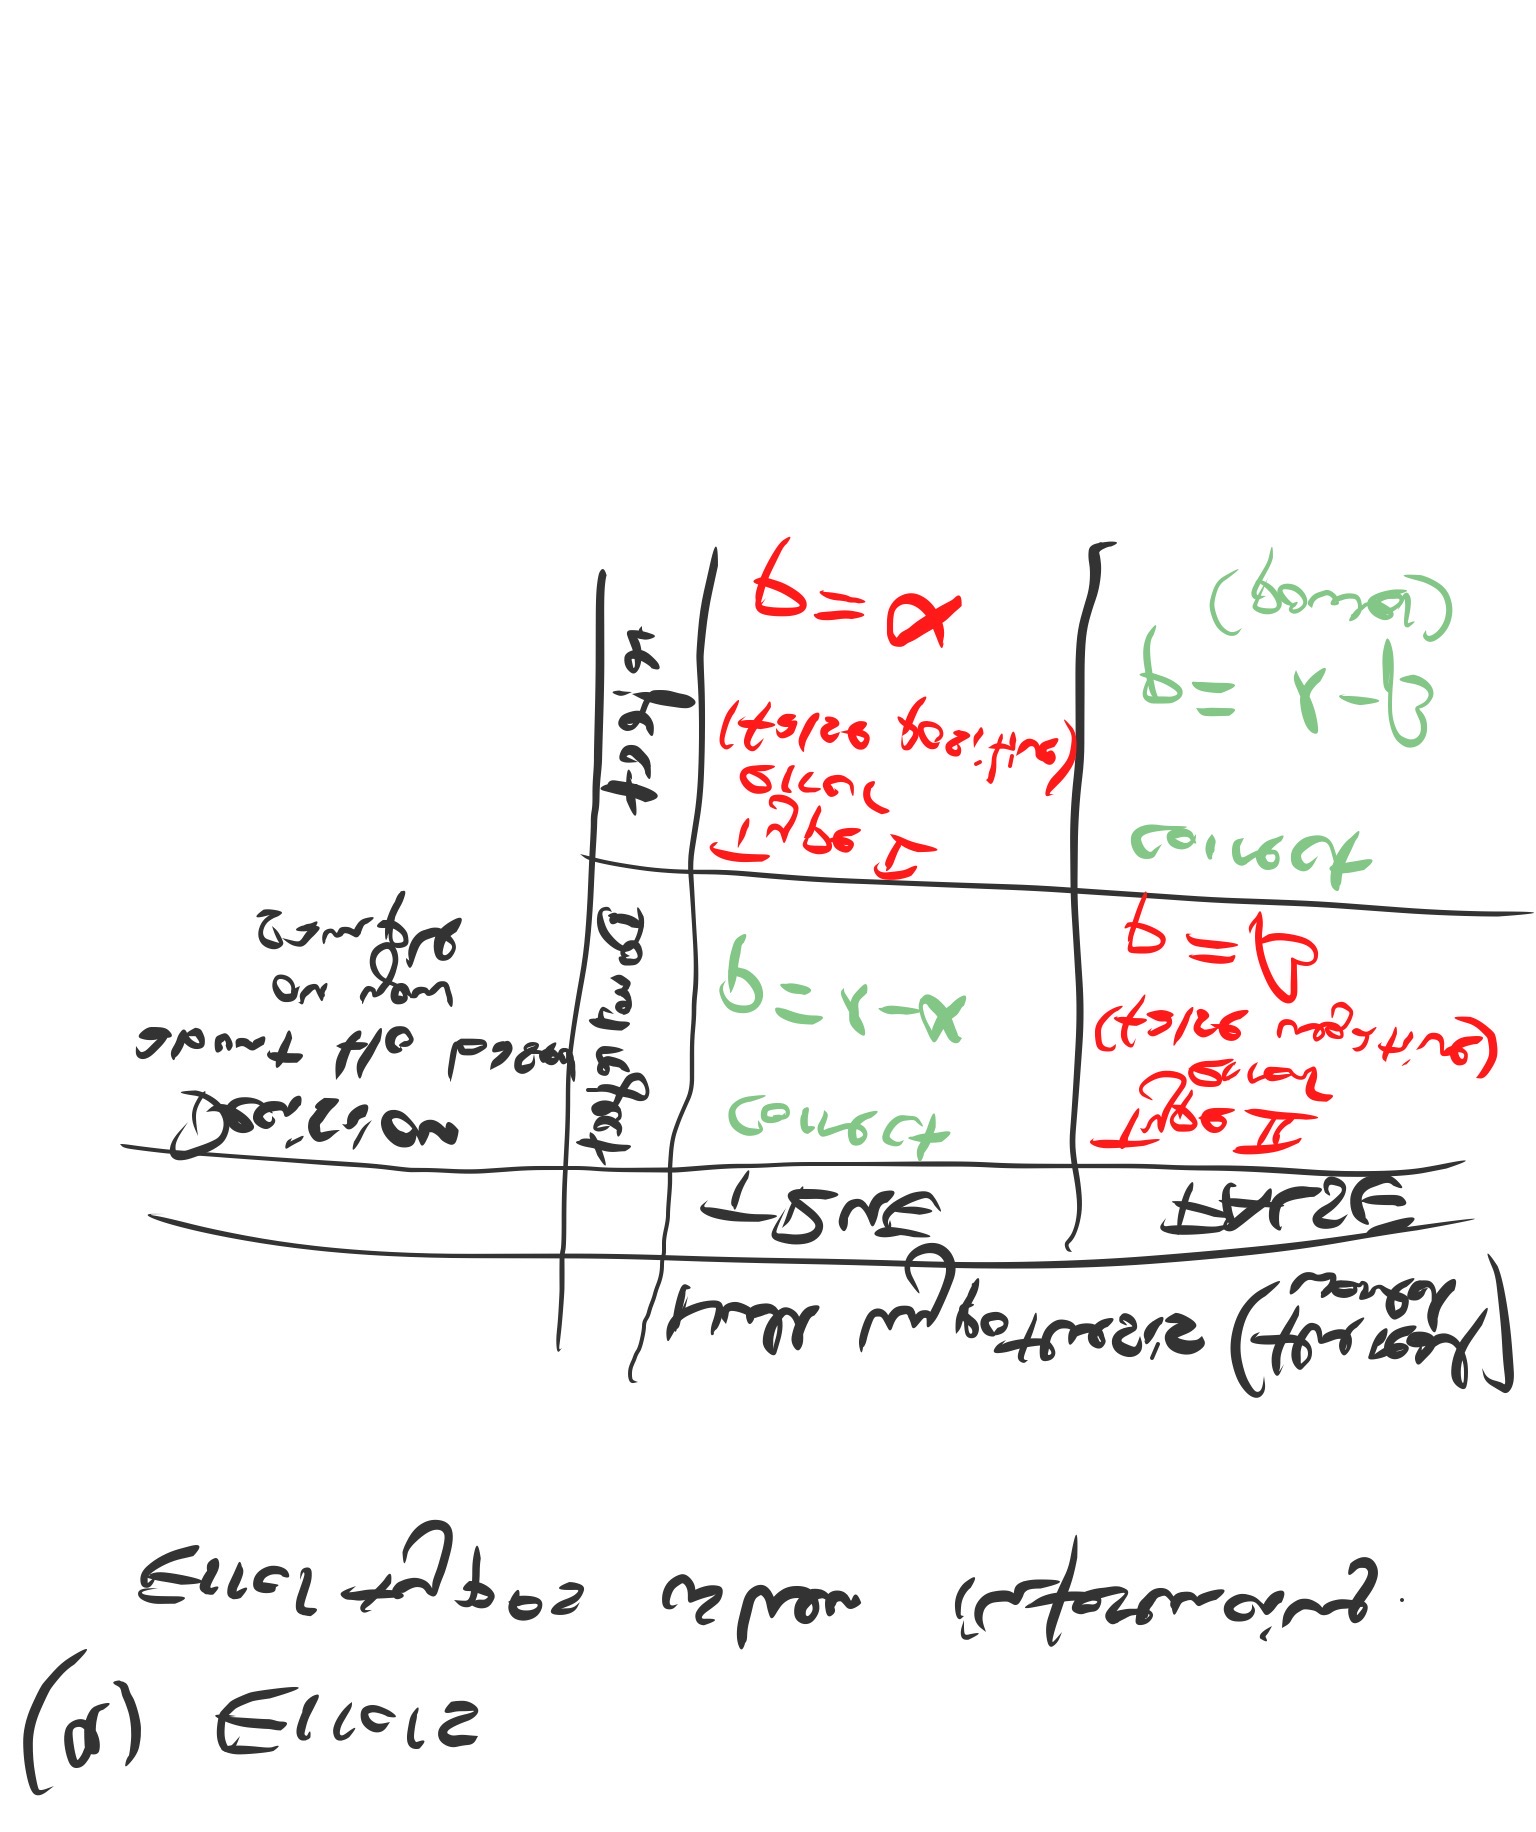 (a) Errors
Error types when inferencing.
Null hypothesis (the real
world)
TRUE FALSE
Decision
about H0 based
on your
sample
Don't reject
correct
p = 1 - α
Type II
error
(false negative)
p = β
reject
Type I
error
(false positive)
p = α
correct
p = 1 - β
(power)